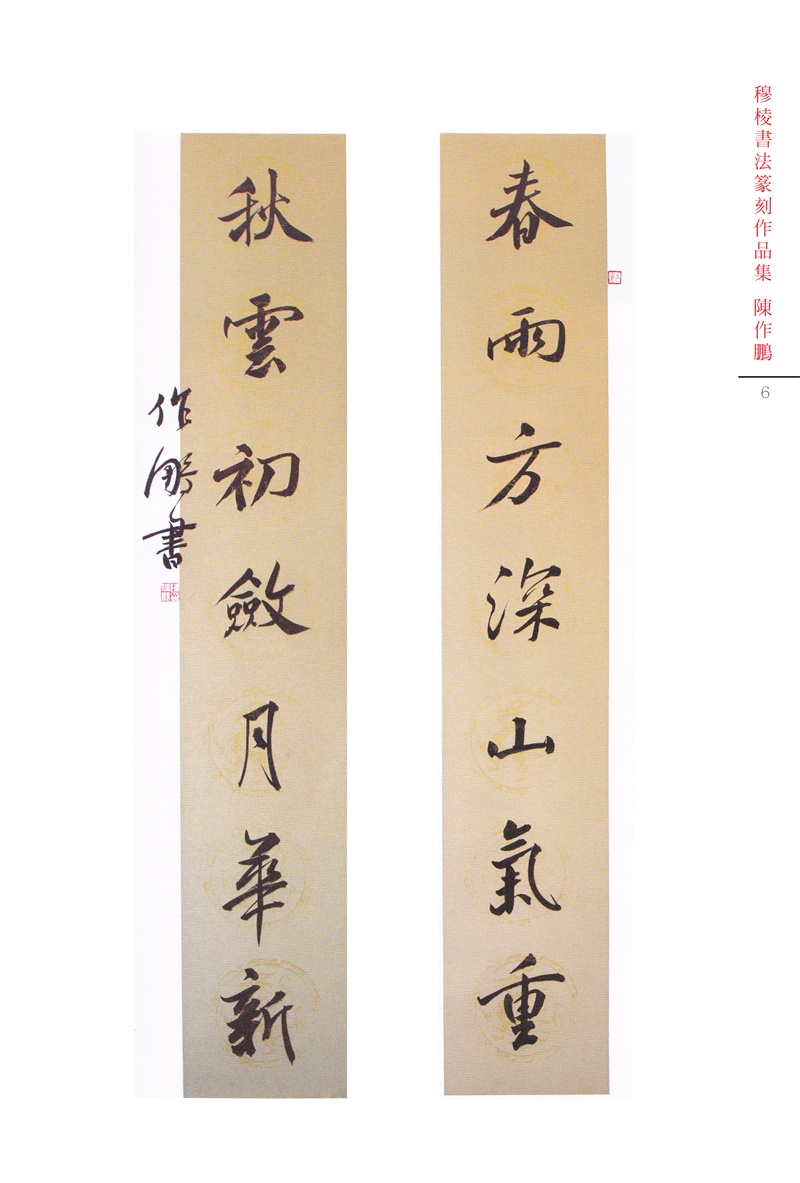 穆棱書法篆刻作品集 陳作鵬
6
春雨方深山氣重
秋雲初斂月華新
作鵬書